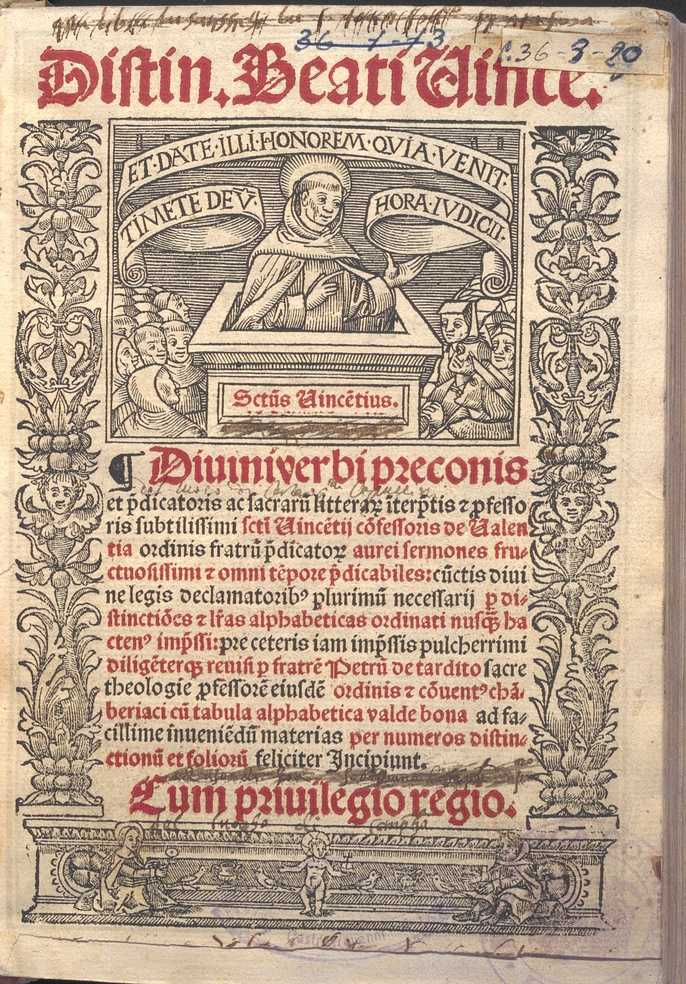 36-7-73
C.36-3-20
Distin. Beati Uince.
ET·DATE·ILLI·HONOREM·QVIA·VENIT·
TIMETE DEV̄· HORA·IVDICII·
Sctūs Uincētius.
¶ Diuini verbi preconis
et p̄dicatoris ac sacrarū litteraꝝ īterp̄tis ⁊ ꝓfesso
ris subtilissimi sctī Uincētij cōfessoris de Ualen
tia ordinis fratrū p̄dicatoꝝ aurei sermones fru⸗
ctuosissimi ⁊ omni tēpore p̄dicabiles: cūctis diui
ne legis declamatoribꝰ plurimū necessarij ꝑ di⸗
stinctiōes ⁊ lr̄as alphabeticas ordinati nusꝙ̄ ha
ctenꝰ imp̄ssi: pre ceteris iam imp̄ssis pulcherrimi
diligēterqꝫ reuisi ꝑ fratrē Petrū de tardito sacre
theologie ꝓfessorē eiusdē ordinis ⁊ cōuentꝰ chā⸗
beriaci cū tabula alphabetica valde bona ad fa⸗
cillime inueniēdū materias per numeros distin⸗
ctionū et foliorū feliciter Incipiunt.
Cum priuilegio regio.